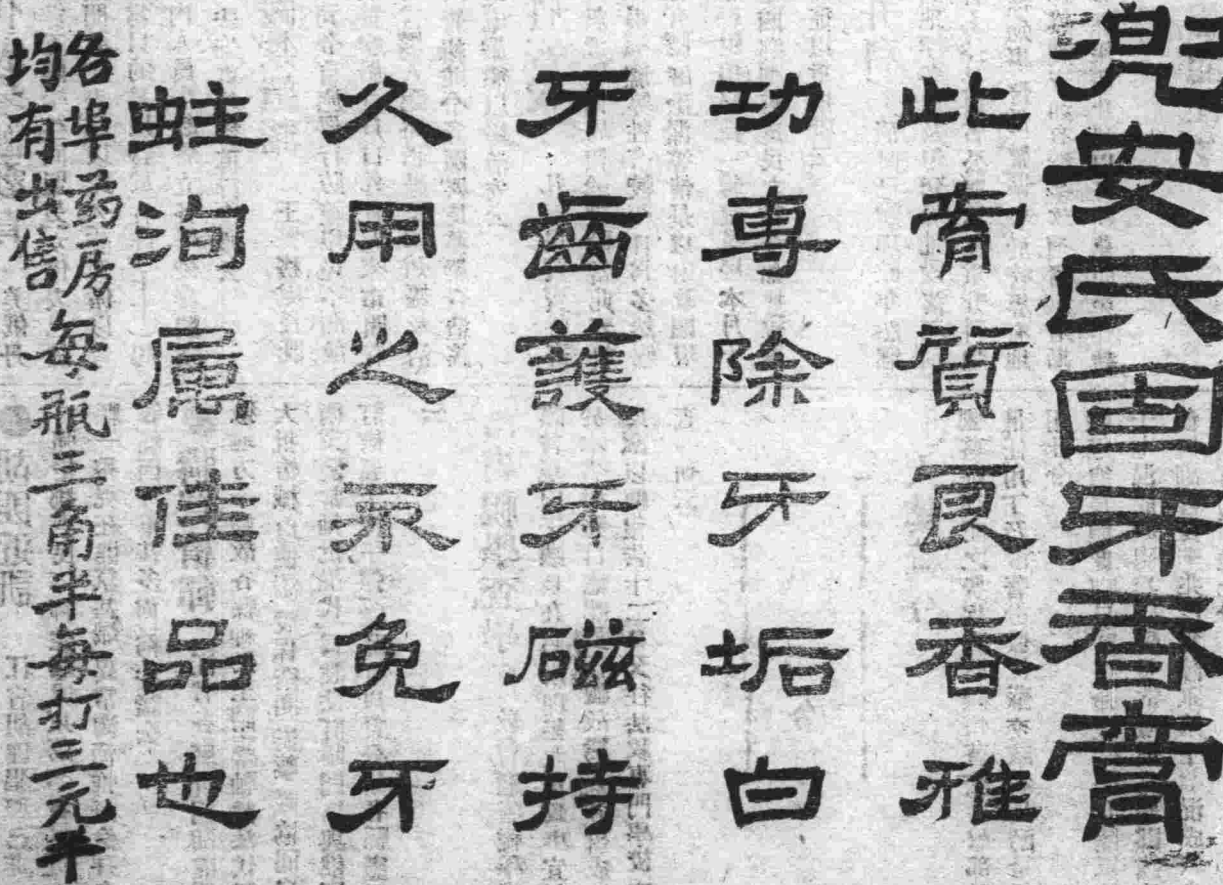 兜安氏固牙香膏
此膏質良香雅
功專除牙垢白
牙齒護牙磁持
久用之永免牙
蛀洵屬佳品也
各埠药房
均有出售
每瓶三角半每打三元半